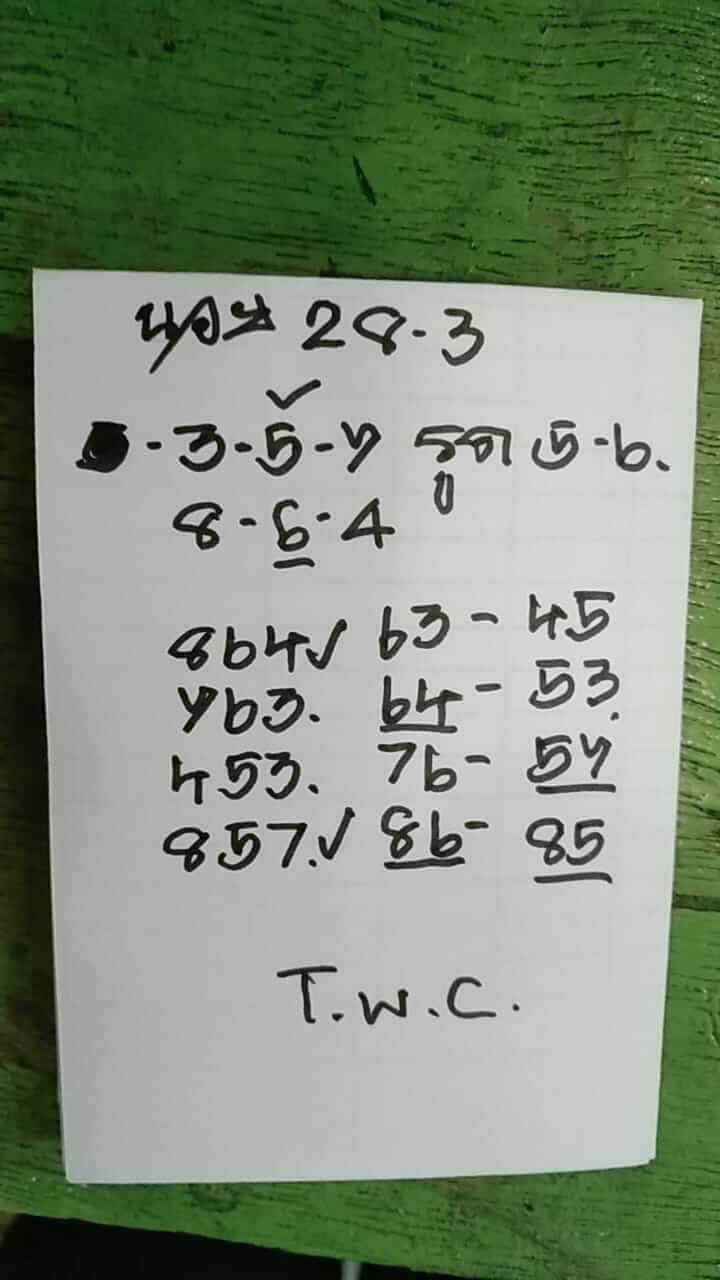 ฮานอย 28-3
-3-5-7 รูด 5-6.
8-6-4
864✓ 63-45
763. 64-53.
453. 76-57
857.✓ 86-85
T.W.C.